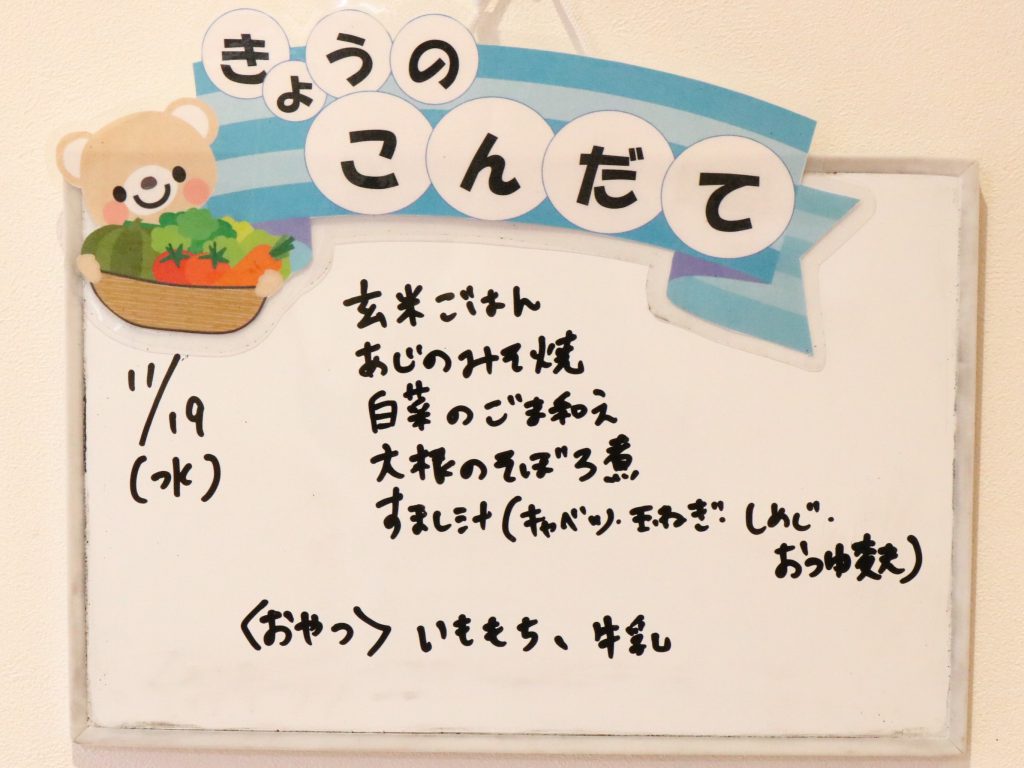 きょうの
こんだて
11/19
(水)
玄米ごはん
あじのみそ焼
白菜のごま和え
大根のそぼろ煮
すまし汁(キャベツ・玉ねぎ・しめじ・
おつゆ麩)
〈おやつ〉いももち、牛乳